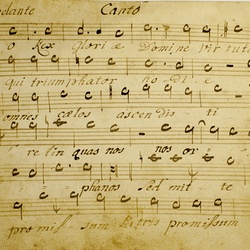 Andante Canto
O Rex Gloriæ Domine virtutu
qui triumphator hodie
omnes cælos ascendisti
relinquas nos or
phanos sed mitte
promissum Patris promissum